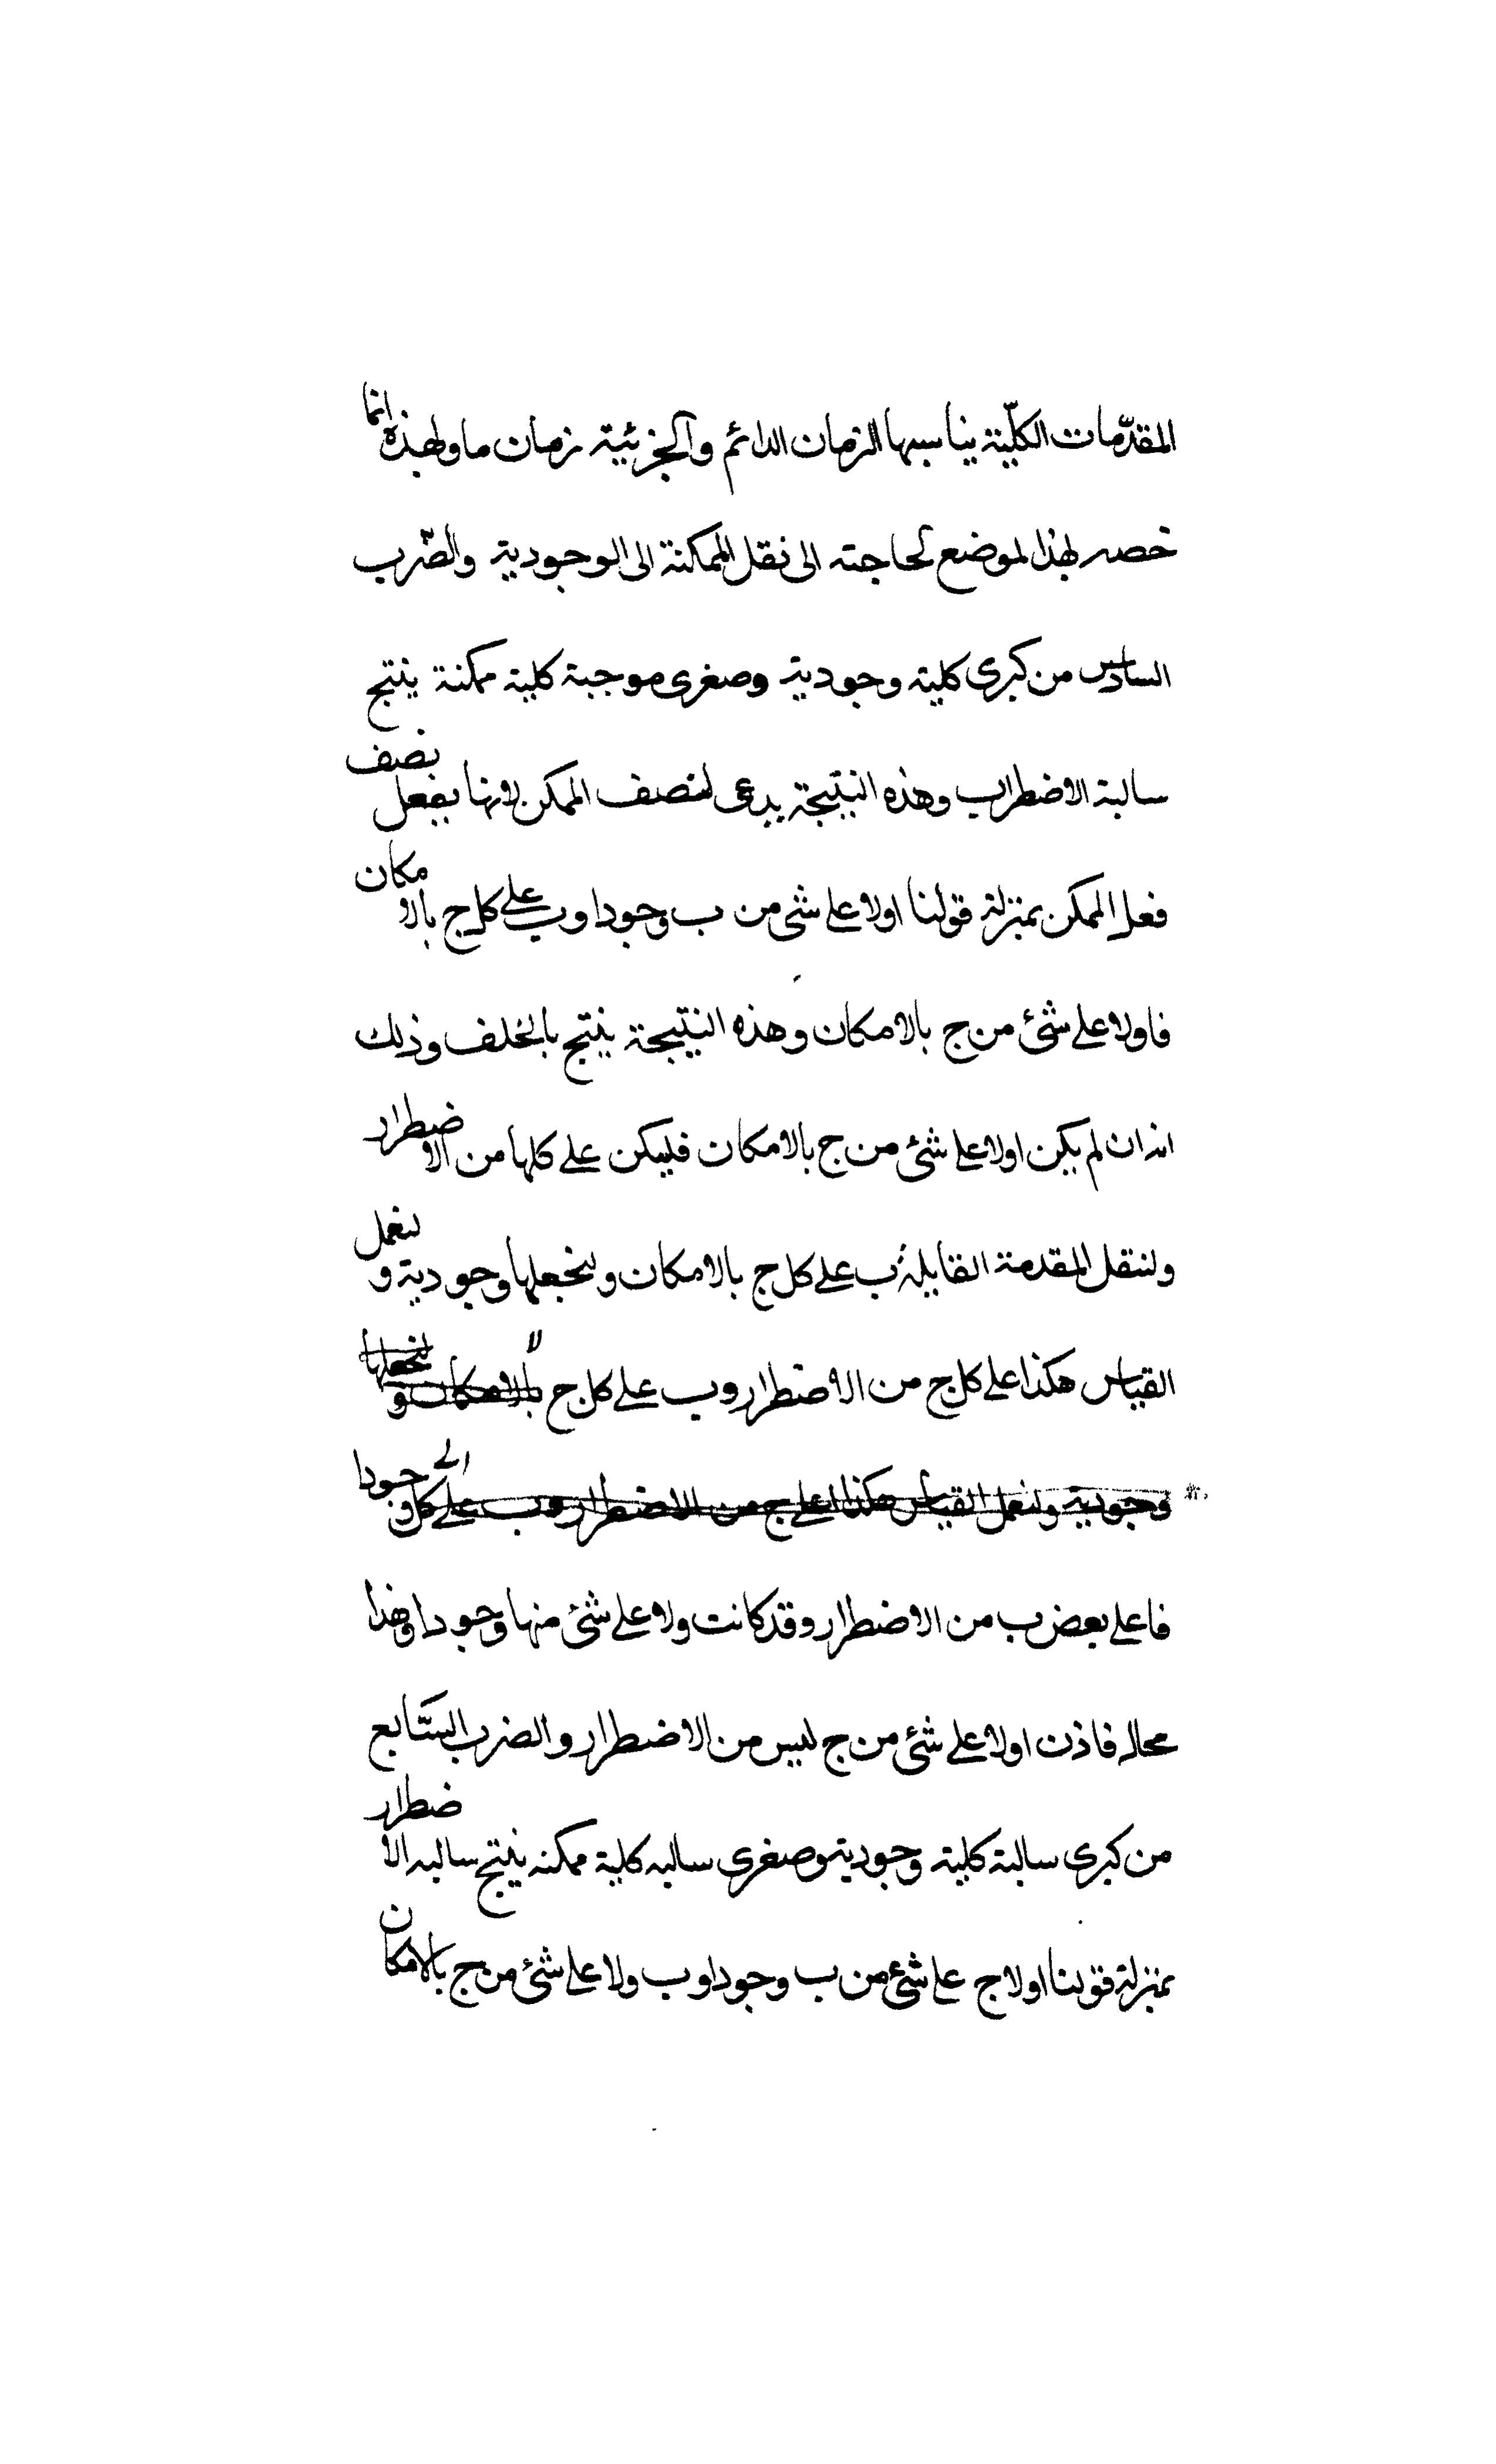 المقدّمات الكلّية يناسبها الزمان الدائم والجزئية زمان ما ولهذه انما
خصه بهذا لموضع لحاجته الى نقل الممكنة الى الوجودية والضّرب
السادس من كبرى كلية وجودية وصغرى موجبة كلية ممكنة ينتج
سالبة الاضطراب وهذه النتيجة يدعى لنصف الممكن لانها بفعل نصف
فعل الممكن بمنزلة قولنا اولا على شئ من ب وجودا وب على كل ج بالامكان
فاولا على شئ من ج بالامكان وهذه النتيجة ينتج بالخلف وذلك
انه ان لم يكن اولا على شئ من ج بالامكان فليكن على كلها من الاضطرار
ولننقل المقدمة القايلة ب على كل ج بالامكان ولنجعلها وجودية و لنعمل
القياس هكذا على كل ج من الاضطرار وب على كل ج بالامكان و لنجعلها
وجودية ولنعمل القياس هكذا ا على ج من الاضطرار وب على كل وجودا
فا على بعض ب من الاضطرار وقد كانت ولا على شئ منها وجودا وهذا
محال فاذن اولا على شئ من ج ليس من الاضطرار والضرب السّابع
من كبرى سالبة كلية وجودية وصغرى سالبه كلية ممكنه ينتج سالبه الاضطرار
بمنزلة قولنا اولا ج على شئ من ب وجودا وب ولا على شئ من ج بالامكان